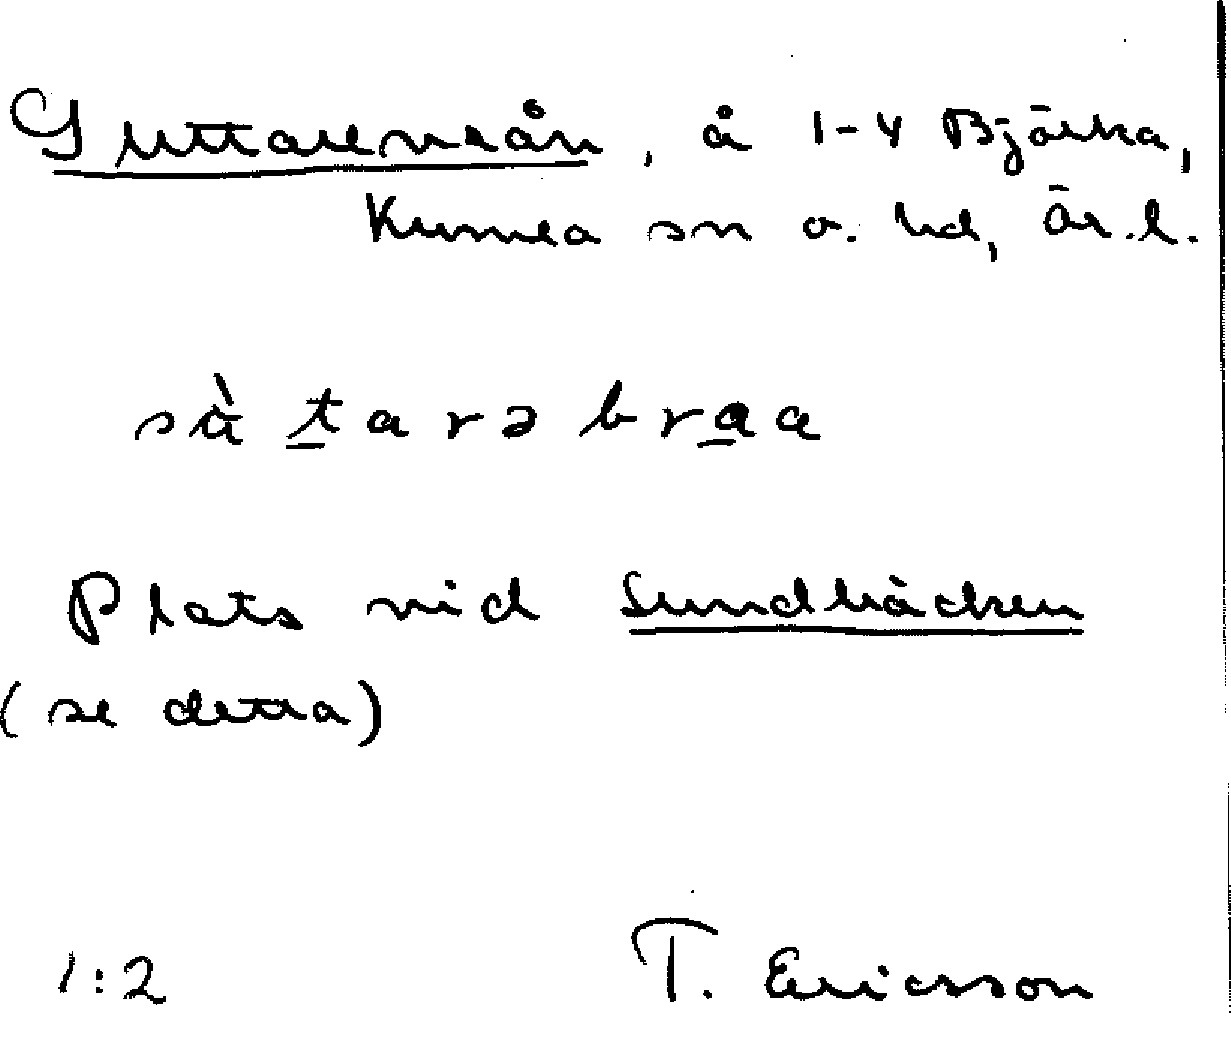 Suttarevrån, å 1-4 Björka,
Kumla sn o. hd, Ör.l.
sὰ t̲a r ə b r a̲ a
Plats vid Sundbäcken
(se detta)
1:2 T. Ericsson